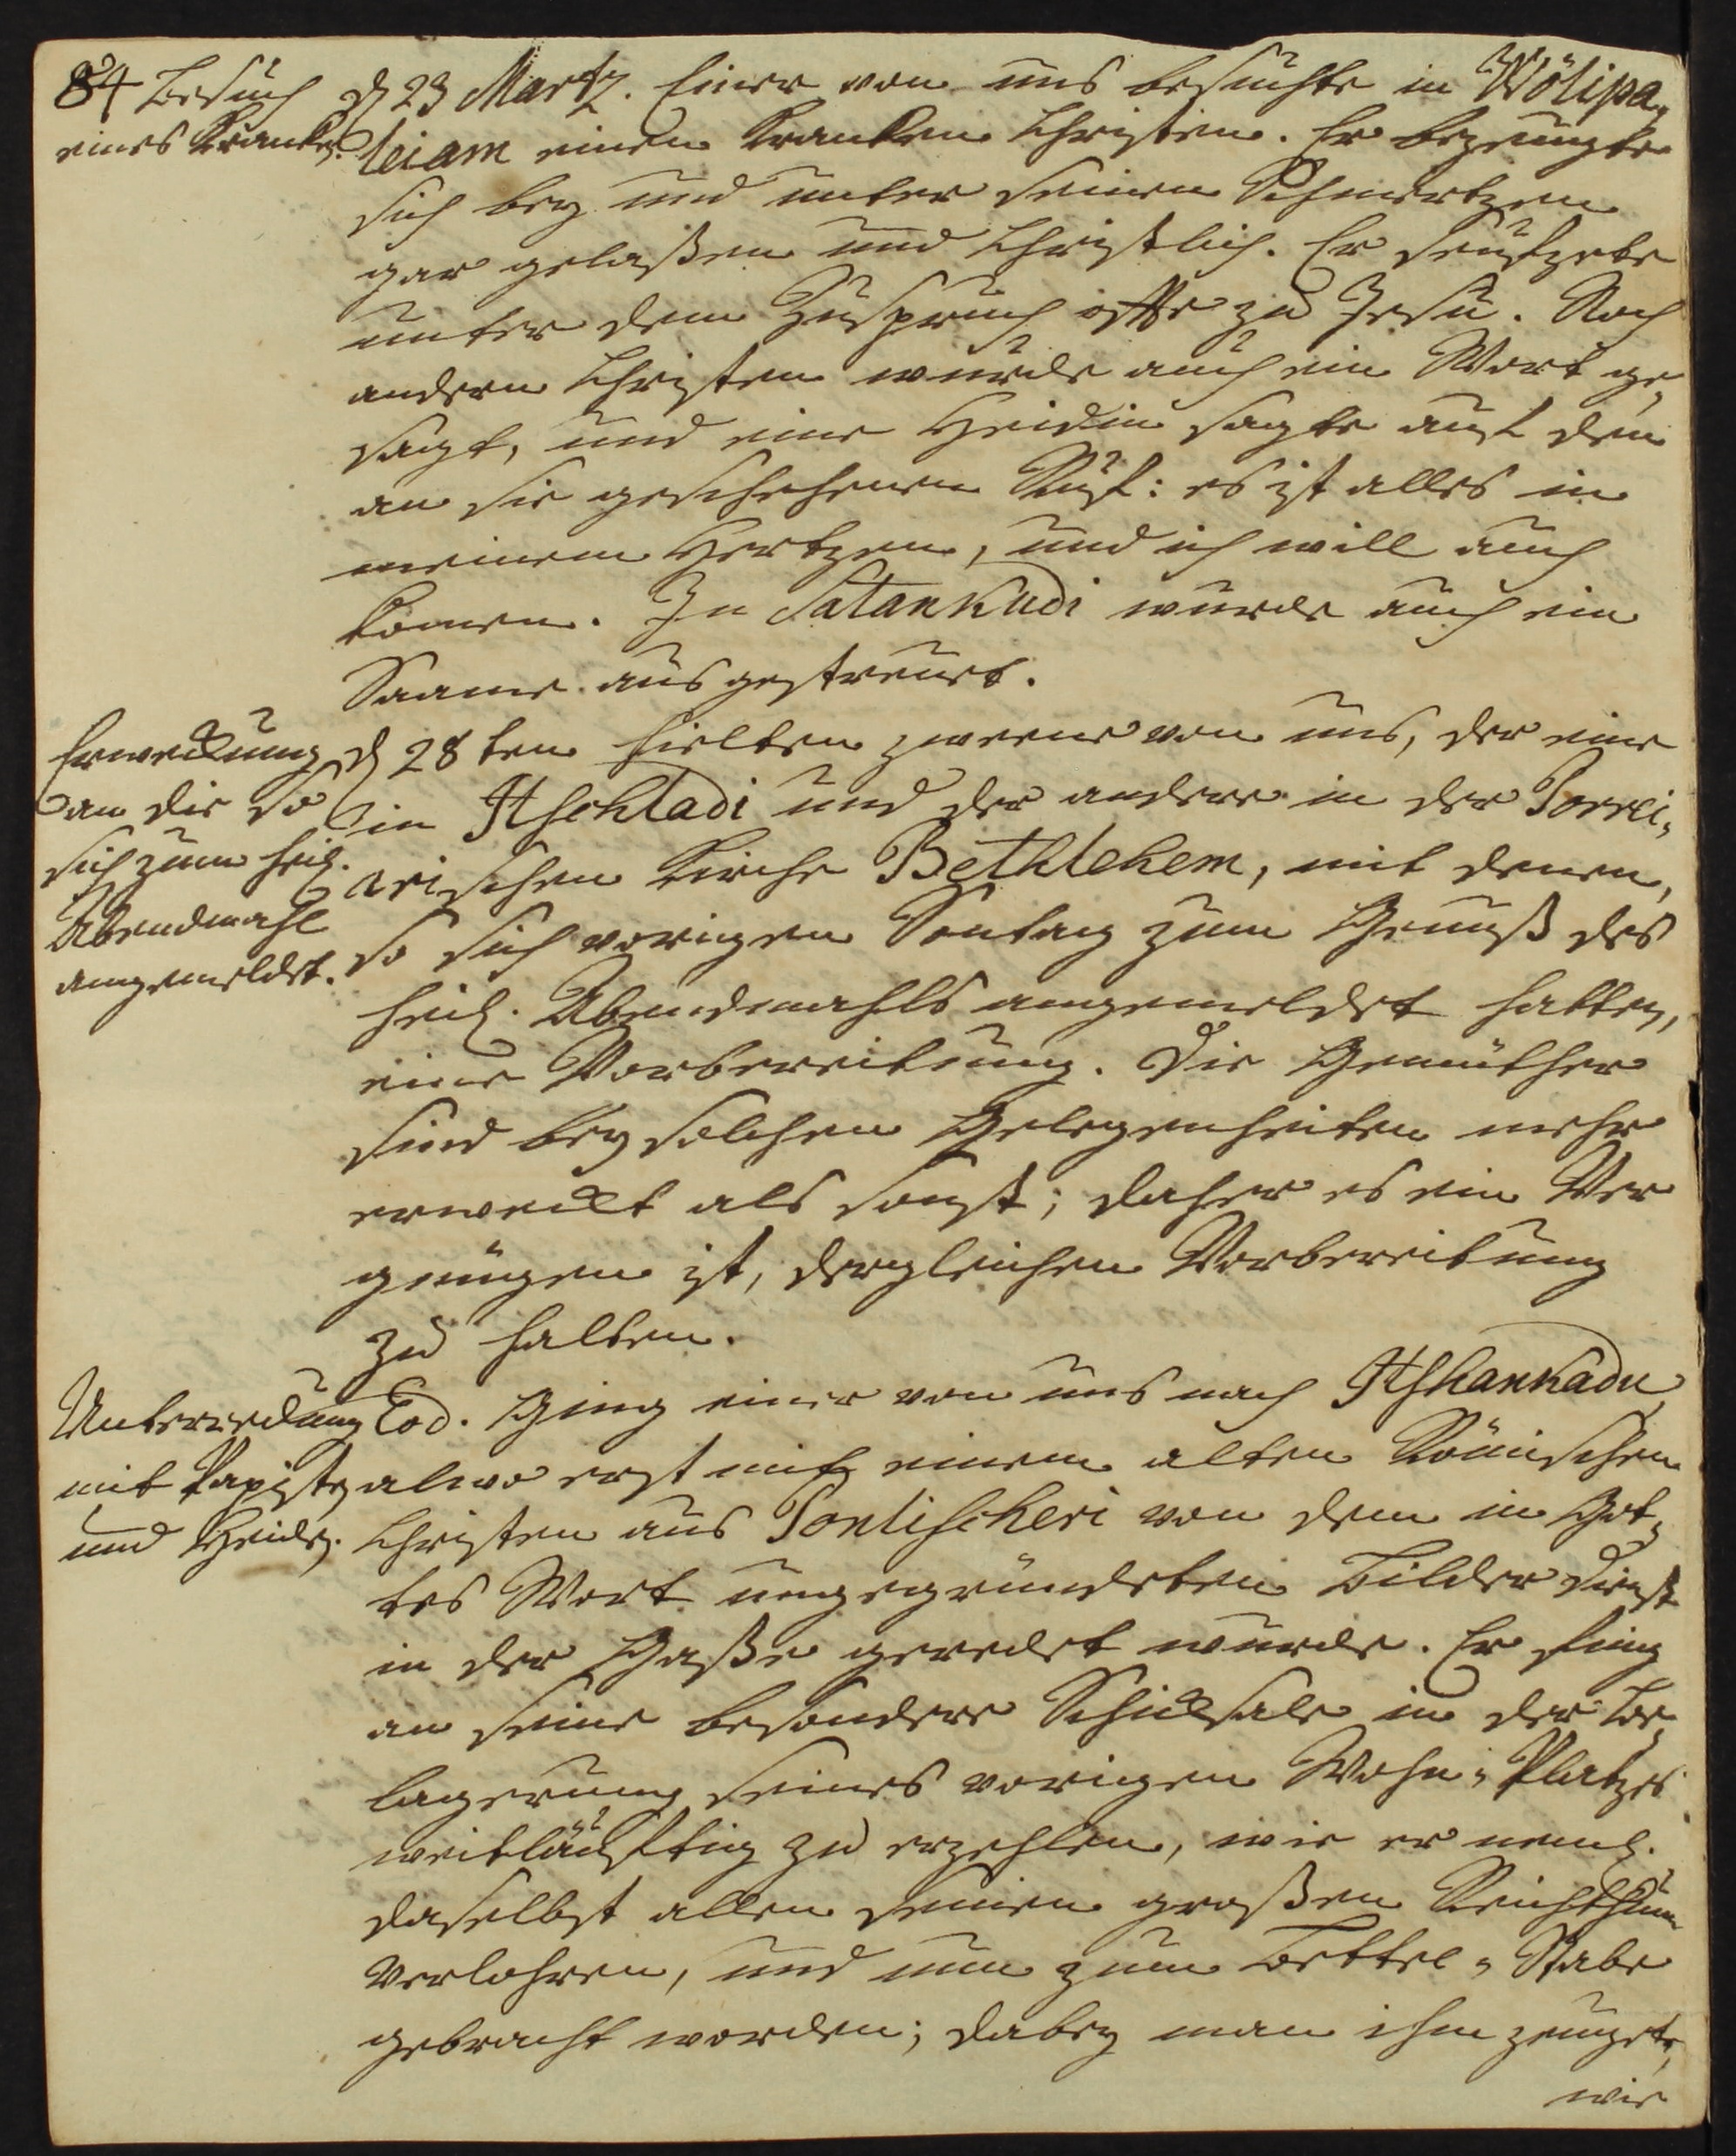 84 Besuch
eines Krancken.
d 23 Martz. Einer von uns besuchte in Wölipa,
leiam einen krancken Christen. Er bezeugte
sich bey und unter seinen Schmertzen
gar gelaßen und Christlich. Er seufzete
unter dem Zuspruch öffte zu Jesu. Noch
andern Christen wurde auch ein Wort ge,
sagt, und eine Heidin sagte auf den
an sie geschehenen Ruf: es ist alles in
meinem Hertzen, und ich will auch
komen. In Satankudi wurde auch ein
Saame ausgestreuet.
Erweckung
an die so
sich zum heil.
Abendmahl
angemeldet.
d 28ten hielten zweene von uns, der eine
in Itschladi und der andere in der Porrei,
arischen Kirche Bethlehem, mit denen,
so sich vorigen Sontag zum Genuß des
heil. Abendmahls angemeldet hatten,
eine Vorbereitung. Die Gemüther
sind bey solchen Gelegenheiten mehr
erweckt als sonst; daher es ein Ver
gnügen ist, dergleichen Vorbereitung
zu halten.
Unterredung
mit Papisten
und Heiden.
Eod. Ging einer von uns nach Itshankadu
alwo erst mit einem alten Römischen
Christen aus Pontischeri von dem in Got,
tes Wort ungegründeten Bilder Dienst
in der Gaße geredet wurde. Er fing
an seine besondere Schicksale in der Be,
lagerung seines vorigen Wohn, Platzes
weitläuftig zu erzehlen, wie er neml.
daselbst allen seinen großen Reichthum
verlohren, und nun zum Bettel, Stabe
gebracht worden; dabey man ihm zeugete,
wie